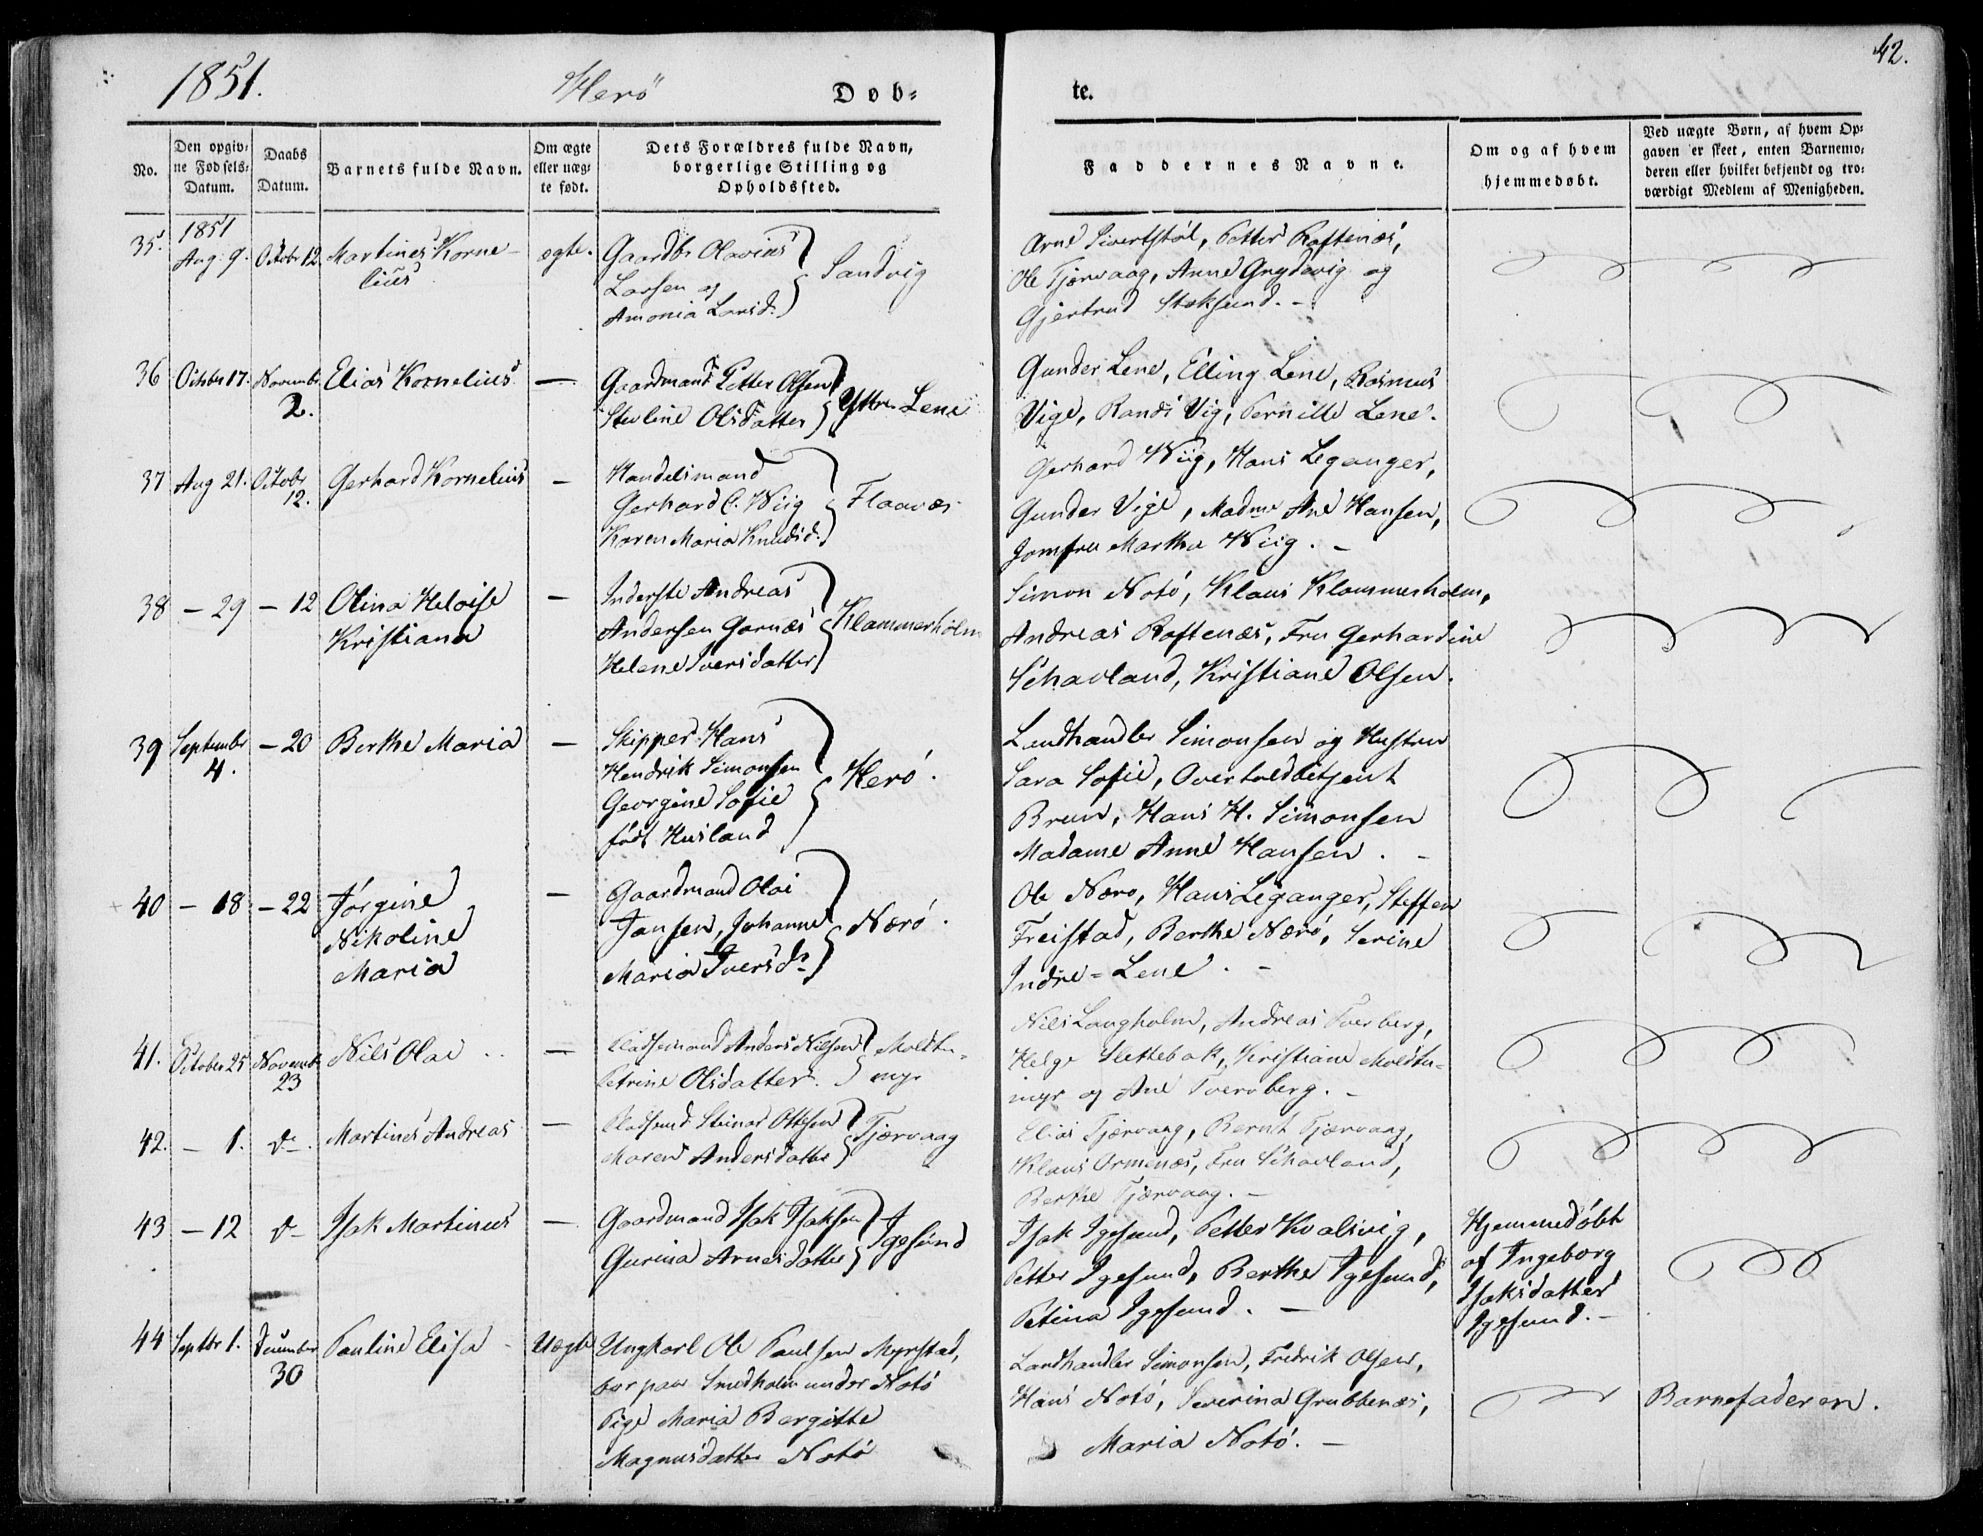 1851.
Herö
Døb-
te.
42.
No.
Den opgiv-
ne Fødsels-
Datum.
Daabs
Datum.
Barnets fulde Navn.
Om ægte
eller uæg-
te født.
Dets Forældres fulde Navn,
borgerlige Stilling og
Opholdssted.
Faddernes Navne.
Om og af hvem
hjemmedøbt.
Ved uægte Børn, af hvem Op-
gaven er skeet, enten Barnemo-
deren eller hvilket bekjendt og tro-
værdigt Medlem af Menigheden.
35. 1851
Aug. 9. Octobr 12. Martines Korne-
lius
ægte. Gaardbr Olavius
Larsen og
Amonia Larsd.
Sandvig
Arne Sivertstøl, Petter Røftenæs,
Ole Tjærvaag, Anne Grydevig og
Gjertrud Stoksund. -
36 Octobr 17. Novembr
2.
Elias Kornelius — Gaardmand Petter Olsen
Stevline Olsdatter
Yttre-Lene
Gunder Lene, Elling Lene, Rasmus
Vige, Randi Vig, Pernille Lene.
37 Aug 21. Octobr
12.
Gerhard Kornelius — Handelsmand
Gerhard C. Wiig
Karen Maria Knudsd.
Flaavær
Gerhard Wiig, Hans Leganger,
Gunder Vige, Madme Ane Hansen,
Jomfru Martha Wiig. -
38 - 29 - 12 Olina Heloise
Kristiana
— Inderste Andreas
Andersen Garnæs
Helene Iversdatter
Klammerholm
Simon Notö, Klaus Klammerholm,
Andreas Røftenæs, Fru Gerhardine
Schavland, Kristiane Olsen.
39 Septembr
4.
- 20 Berthe Maria — Skipper Hans
Hendrik Simonsen
Georgine Sofie
født Husland
Herö.
Landhandler Simonsen og Hustru
Sara Sofie, Overtoldbetjent
Brun, Hans H. Simonsen
Madame Anne Hansen. -
40 - 18 - 22 Jörgine
Nikoline
Maria
— Gaardmand Olai
Jansen, Johanne
Maria Iversdr
Nærö.
Ole Nærø, Hans Leganger, Steffen
Freistad, Berthe Nærö, Serine
Indre-Lene. -
41. October 25 Novembr
23
Nils Olai — Pladsemand Anders Nilsen
Petrine Olsdatter.
Moldtu-
myr
Nils Langholm, Andreas Tverberg,
Helge Slettebak, Kristiane Moldtu-
myr og Ane Tverberg. -
42. - 1. do. Martines Andreas — Pladsmd Steinar Ottesen
Maren Andersdatter
Tjærvaag
Elias Tjærvaag, Bernt Tjærvaag,
Klaus Ormenæs, Fru Schavland,
Berthe Tjærvaag. -
43 - 12 do Isak Martinus — Gaardmand Isak Isaksen
Gurina Arnesdatter
Igesund
Isak Igesund, Petter Kvalsvig,
Petter Igesund, Berthe Igesund,
Petina Igesund. -
Hjemmedöbt
af Ingeborg
Isaksdatter
Igesund. -
44 Septbr 1. December
30
Pauline Elisa - Uægte Ungkarl Ole Paulsen Myrstad,
bor paa Smedholm under Notö
Pige Maria Bergitte
Magnusdatter Notö
Landhandler Simonsen, Fredrik Olsen,
Hans Notö, Severina Grubbenæs,
Maria Notö. -
Barnefaderen.